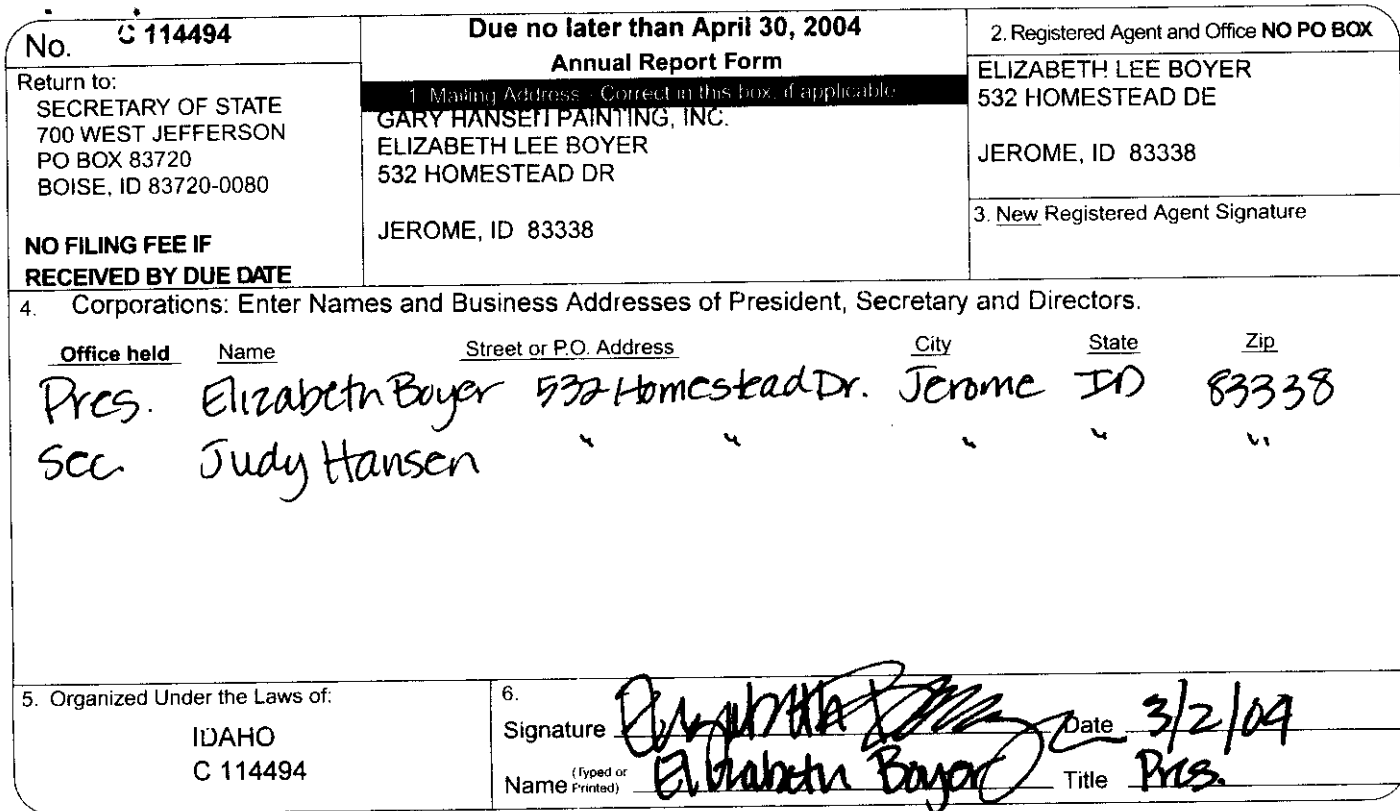 No. C 114494
Return to:
SECRETARY OF STATE
700 WEST JEFFERSON
PO BOX 83720
BOISE, ID 83720-0080
NO FILING FEE IF
RECEIVED BY DUE DATE
Due no later than April 30, 2004
Annual Report Form
1. Mailing Address - Correct in this box, if applicable
GARY HANSEN PAINTING, INC.
ELIZABETH LEE BOYER
532 HOMESTEAD DR
JEROME, ID 83338
2. Registered Agent and Office NO PO BOX
ELIZABETH LEE BOYER
532 HOMESTEAD DE
JEROME, ID 83338
3. New Registered Agent Signature
4. Corporations: Enter Names and Business Addresses of President, Secretary and Directors.
Office held Name Street or P.O. Address City State Zip
Pres. Elizabeth Boyer 532 Homestead Dr. Jerome ID 83338
Sec. Judy Hansen " " " " "
5. Organized Under the Laws of:
IDAHO
C 114494
6.
Signature Elizabeth Boyer Date 3/2/04
Name (Typed or Printed) Elizabeth Boyer Title Pres.